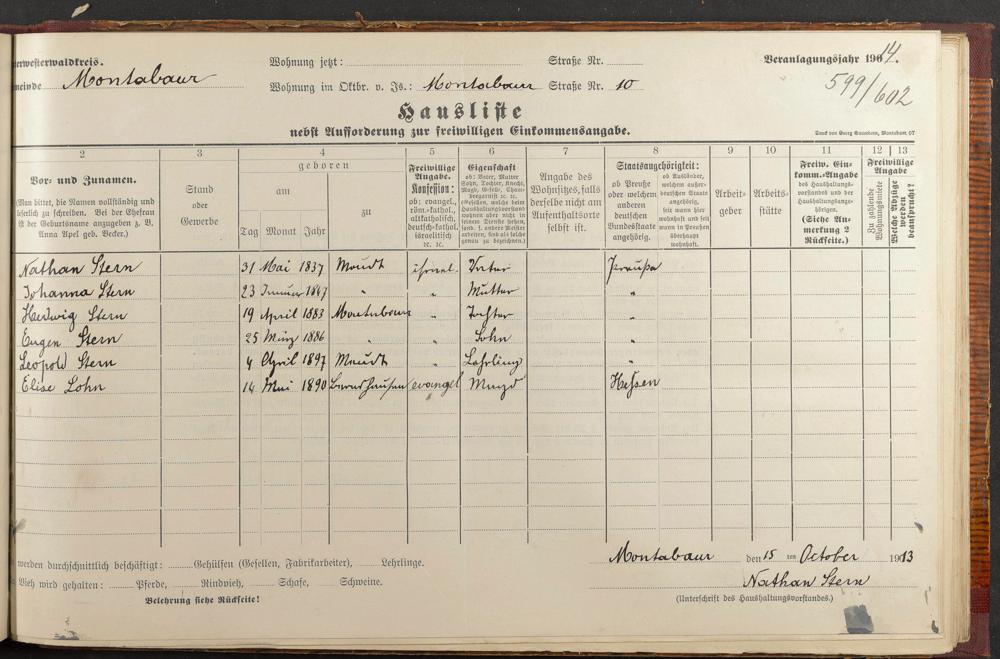 nterwesterwaldkreis. Wohnung jetzt: Straße Nr. Veranlagungsjahr 1914.
meinde Montabaur Wohnung im Oktbr. v. Js.: Montabaur Straße Nr. 10 599/602
Hausliste
nebst Aufforderung zur freiwilligen Einkommensangabe.
Druck von Georg Sauerborn, Montabaur. 07
2 3 4 5 6 7 8 9 10 11 12 13
Vor- und Zunamen.
(Man bittet, die Namen vollständig und
leserlich zu schreiben. Bei der Ehefrau
ist der Geburtsname anzugeben z. B.
Anna Apel geb. Becker.)
Stand
oder
Gewerbe
geboren
am zu
Tag Monat Jahr
Freiwillige
Angabe.
Konfession:
ob: evangel.,
röm.-kathol.,
altkatholisch,
deutsch-kathol.
israelitisch
ec. ec.
Eigenschaft
ob: Vater, Mutter
Sohn, Tochter, Knecht,
Magd, Geselle,
Angabe des
Wohnsitzes, falls
derselbe nicht am
Aufenthaltsorte
selbst ist.
Staatsangehörigkeit:
ob Preuße
oder welchem
anderen
deutschen
Bundesstaate
angehörig.
ob Ausländer,
welchem außer-
deutschen Staate
angehörig,
seit wann hier
wohnhaft und seit
wann in Preußen
überhaupt
wohnhaft.
Arbeit-
geber
Arbeits-
stätte
Freiw. Ein-
komm.-Angabe
des Haushaltungs-
vorstandes und der
Haushaltungsange-
hörigen.
(Siehe An-
merkung 2
Rückseite.)
Freiwillige
Angabe
Zu zahlende
Wohnungsmiete
Welche Abzüge
werden
beansprucht?
Nathan Stern 31 Mai 1837 Meudt israel. Vater Preuße
Johanna Stern 23 Januar 1847 " " Mutter "
Hedwig Stern 19 April 1883 Montabaur " Tochter "
Eugen Stern 25 März 1886 " " Sohn "
Leopold Stern 4 April 1897 Meudt " Lehrling "
Elise Lohn 14 Mai 1890 evangel Magd Hessen
werden durchschnittlich beschäftigt: Gehülfen (Gesellen, Fabrikarbeiter), Lehrlinge.
Vieh wird gehalten: Pferde, Rindvieh, Schafe, Schweine.
Belehrung siehe Rückseite!
Montabaur den 15 ten October 1913
Nathan Stern
(Unterschrift des Haushaltungsvorstandes.)